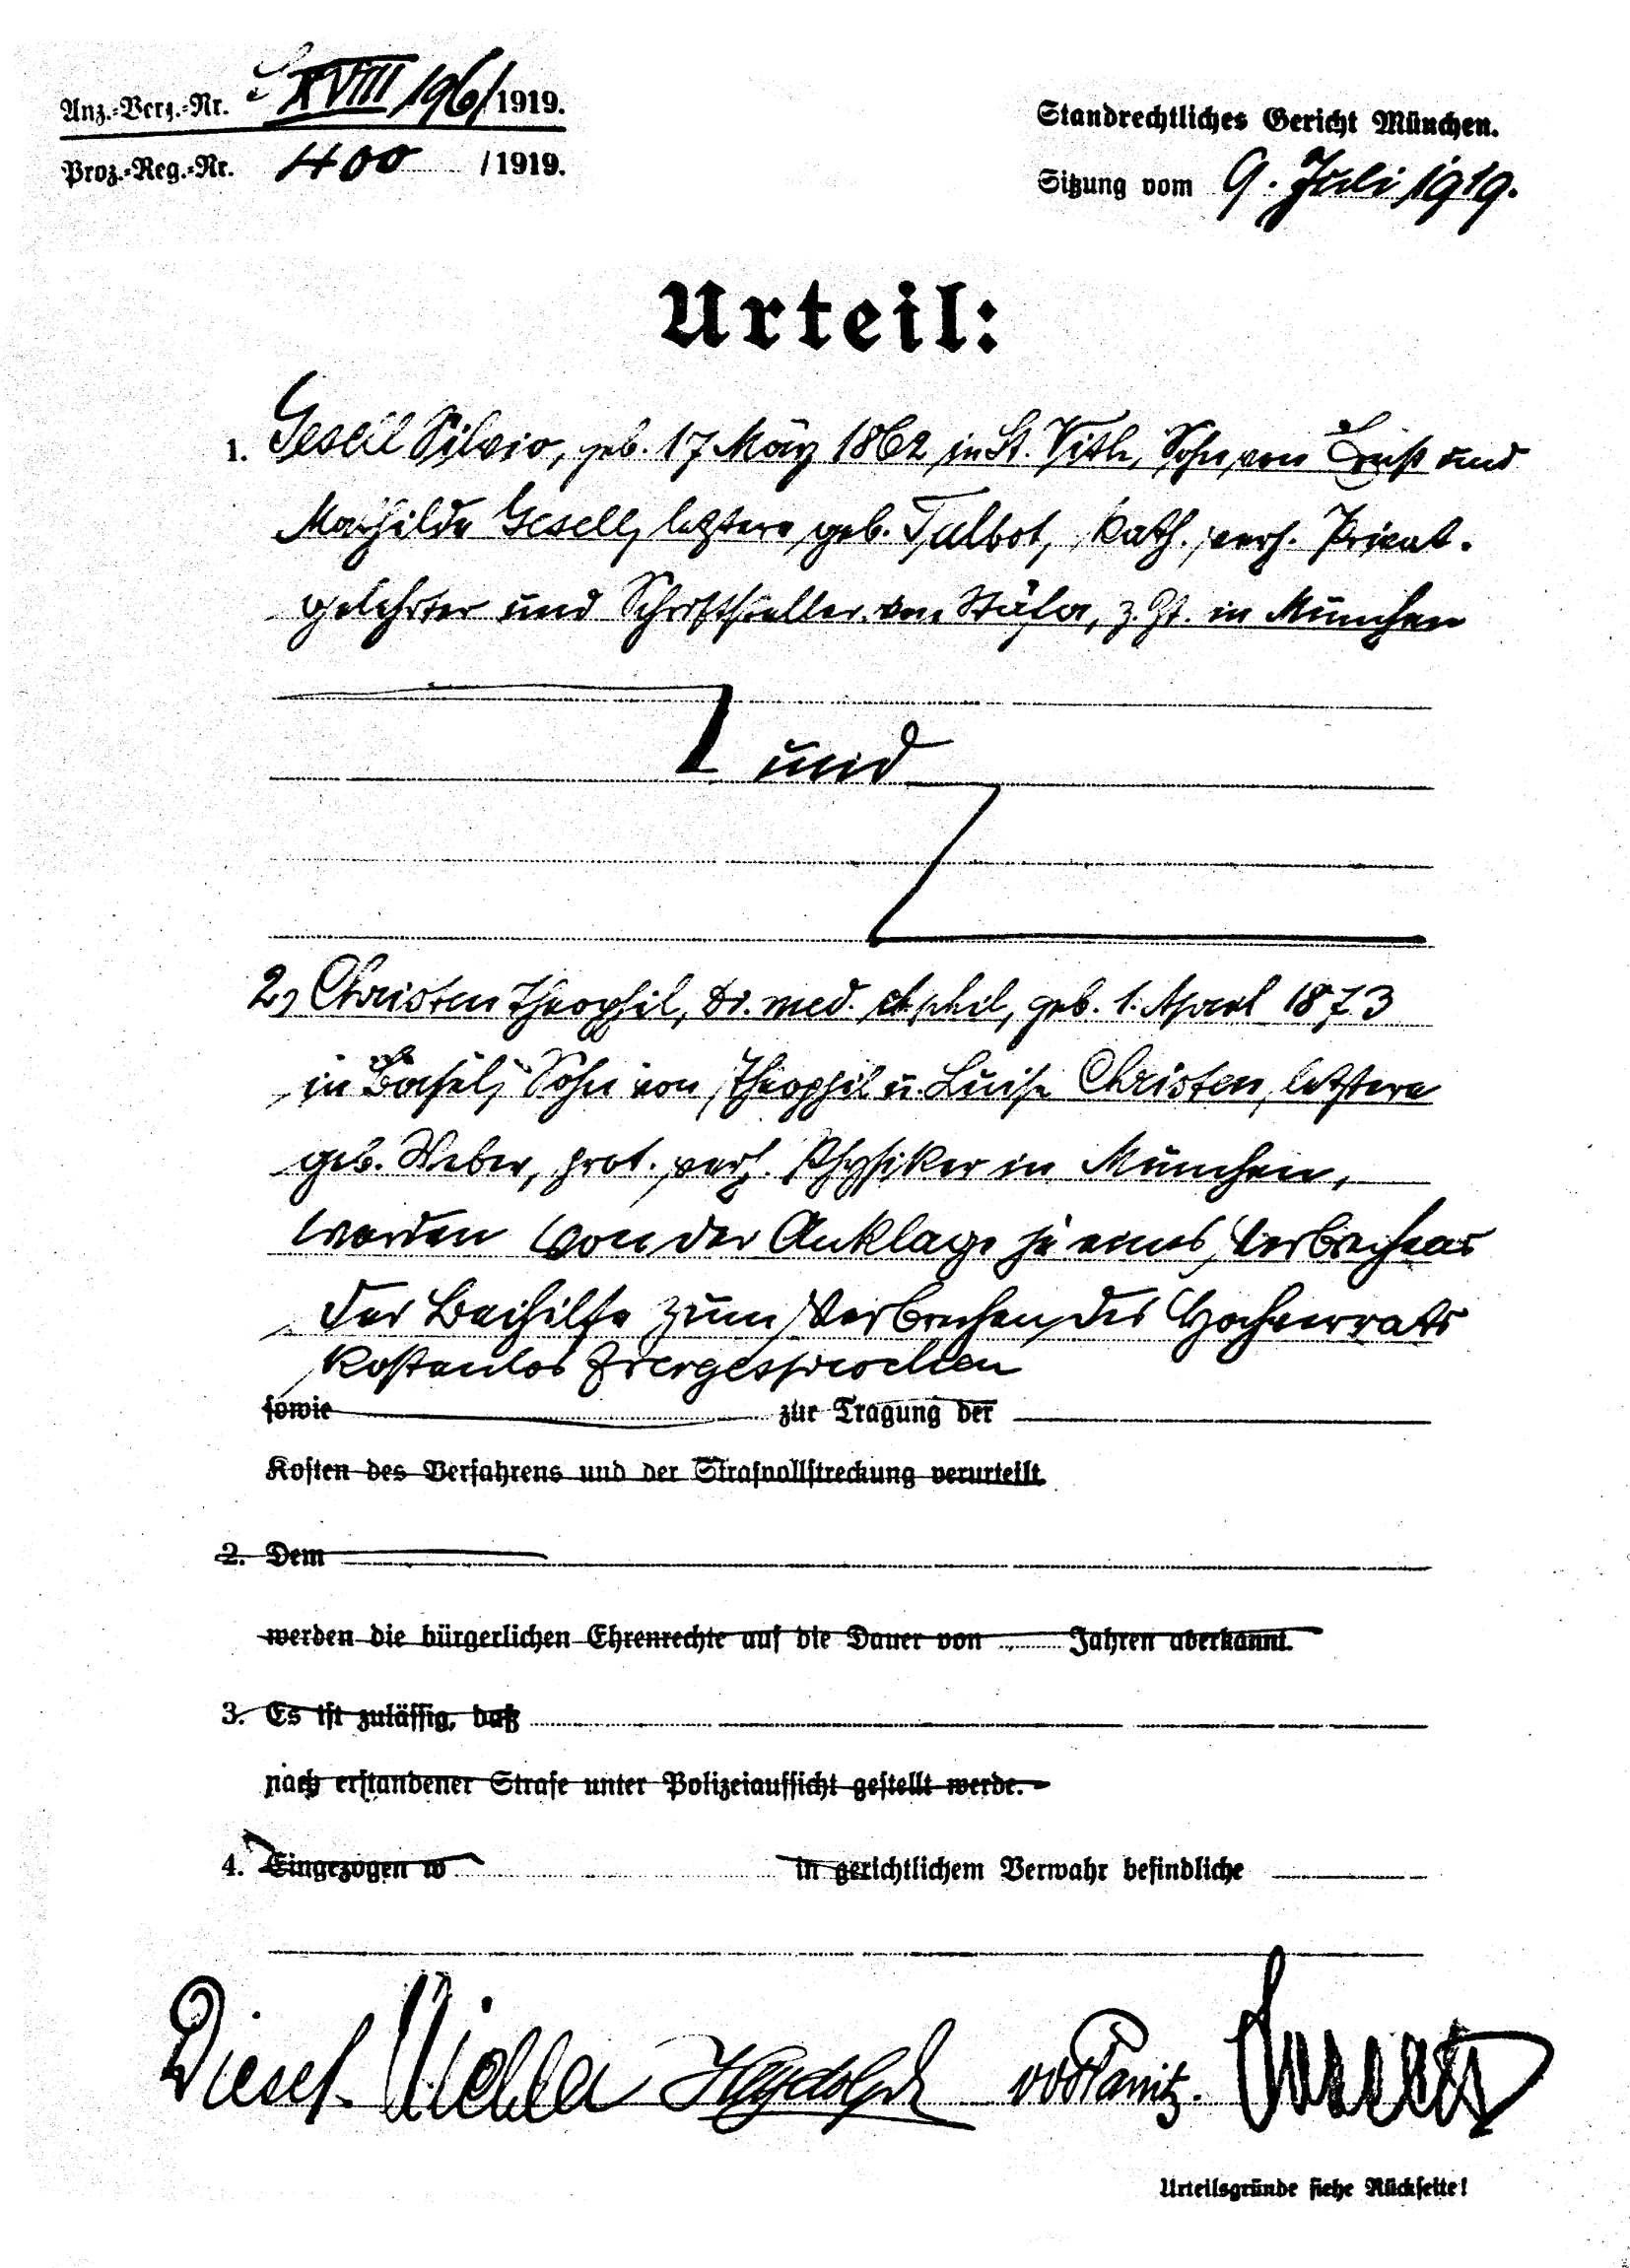 Anz.-Verz.-Nr. XVIII/196/1919.
Proz.-Reg.-Nr. 400 /1919.
Standrechtliches Gericht München.
Sitzung vom 9. Juli 1919.
Urteil:
1. Gesell Silvio, geb. 17 März 1862 in St. Vith, Sohn von und
Mathilde Gesell, letztere geb. Talbot, kath. verh. Privat-
gelehrter und Schriftsteller von Stäfa, z. Zt. in München
und
2) Christen Theophil, Dr. med. et phil, geb. 1. April 1873
in Basel, Sohn von Theophil u. Luise Christen, letztere
geb. Weber, prot. verh. Physiker in München,
werden von der Anklage je eines Verbrechens
der Beihilfe zum Verbrechen des Hochverrats
kostenlos freigesprochen
sowie zur Tragung der
Kosten des Verfahrens und der Strafvollstreckung verurteilt.
2. Dem
werden die bürgerlichen Ehrenrechte auf die Dauer von Jahren aberkannt.
3. Es ist zulässig, daß
nach erstandener Strafe unter Polizeiaufsicht gestellt werde.
4. Eingezogen w in gerichtlichem Verwahr befindliche
Urteilsgründe siehe Rückseite!